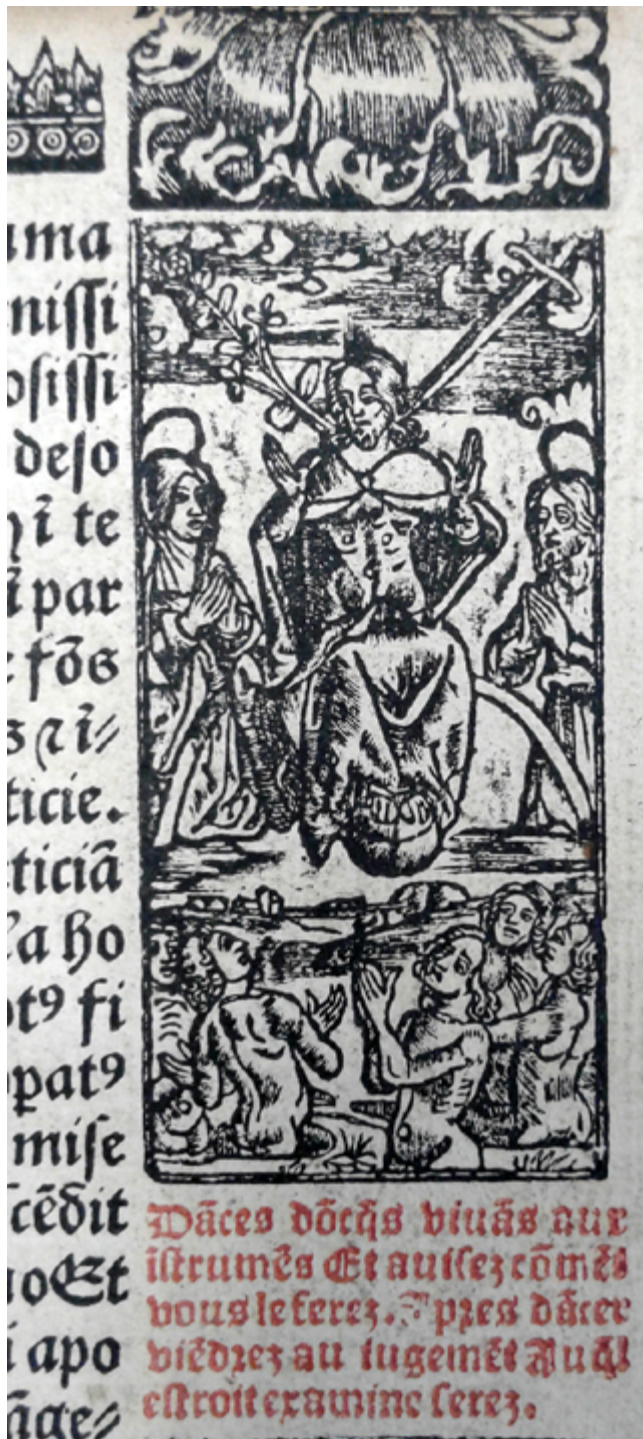 ma
nissi
osissi
deso
⁊ ĩ te
ĩ par
fõs
s ⁊ ĩ⸗
ticie.
ticiã
a ho
otꝰ fi
patꝰ
mise
cẽdit
oEt
apo
ãge⸗
Dãces dõcq̃s viuãs aux
ĩstrumẽs Et auisez cõmẽt
vous le ferez. Apres dãcer
viẽdrez au iugemẽt Auq̃l
estroit examine serez.